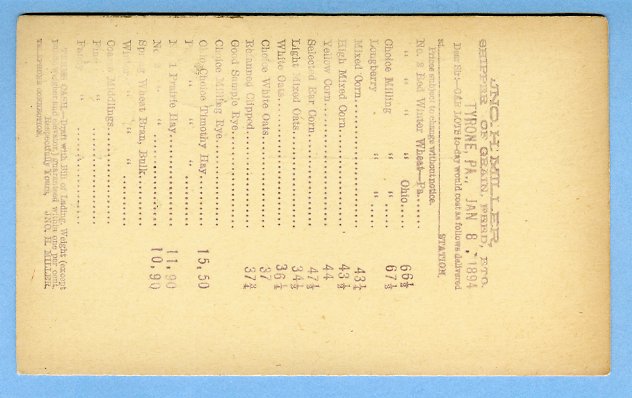 JNO. H. MILLER,
SHIPPER OF GRAIN, FEED, ETC.
TYRONE, PA., JAN 8, 1894
Dear Sir:—CAR LOTS to-day would cost as follows delivered
STATION.
Prices subject to change without notice.
No. 2 Red Winter Wheat—Pa.
" " " " Ohio 66½
Choice Milling " " 67½
Longberry " "
Mixed Corn 43¼
High Mixed Corn 43½
Yellow Corn 44
Selected Ear Corn 47½
Light Mixed Oats 34½
White Oats 36¼
Choice White Oats 37
Recleaned Clipped 37¾
Good Sample Rye
Choice Milling Rye
Ohio Choice Timothy Hay 15,50
P " "
No. 1 Prairie Hay 11,90
No. " " 10,90
Spring Wheat Bran, Bulk
W " "
Middlings
Fine
Fancy
TERMS CASH.—Draft with Bill of Lading. Weight (except
guaranteed within one per cent.
Respectfully Yours, JNO. H. MILLER.
TELEPHONE CONNECTION.